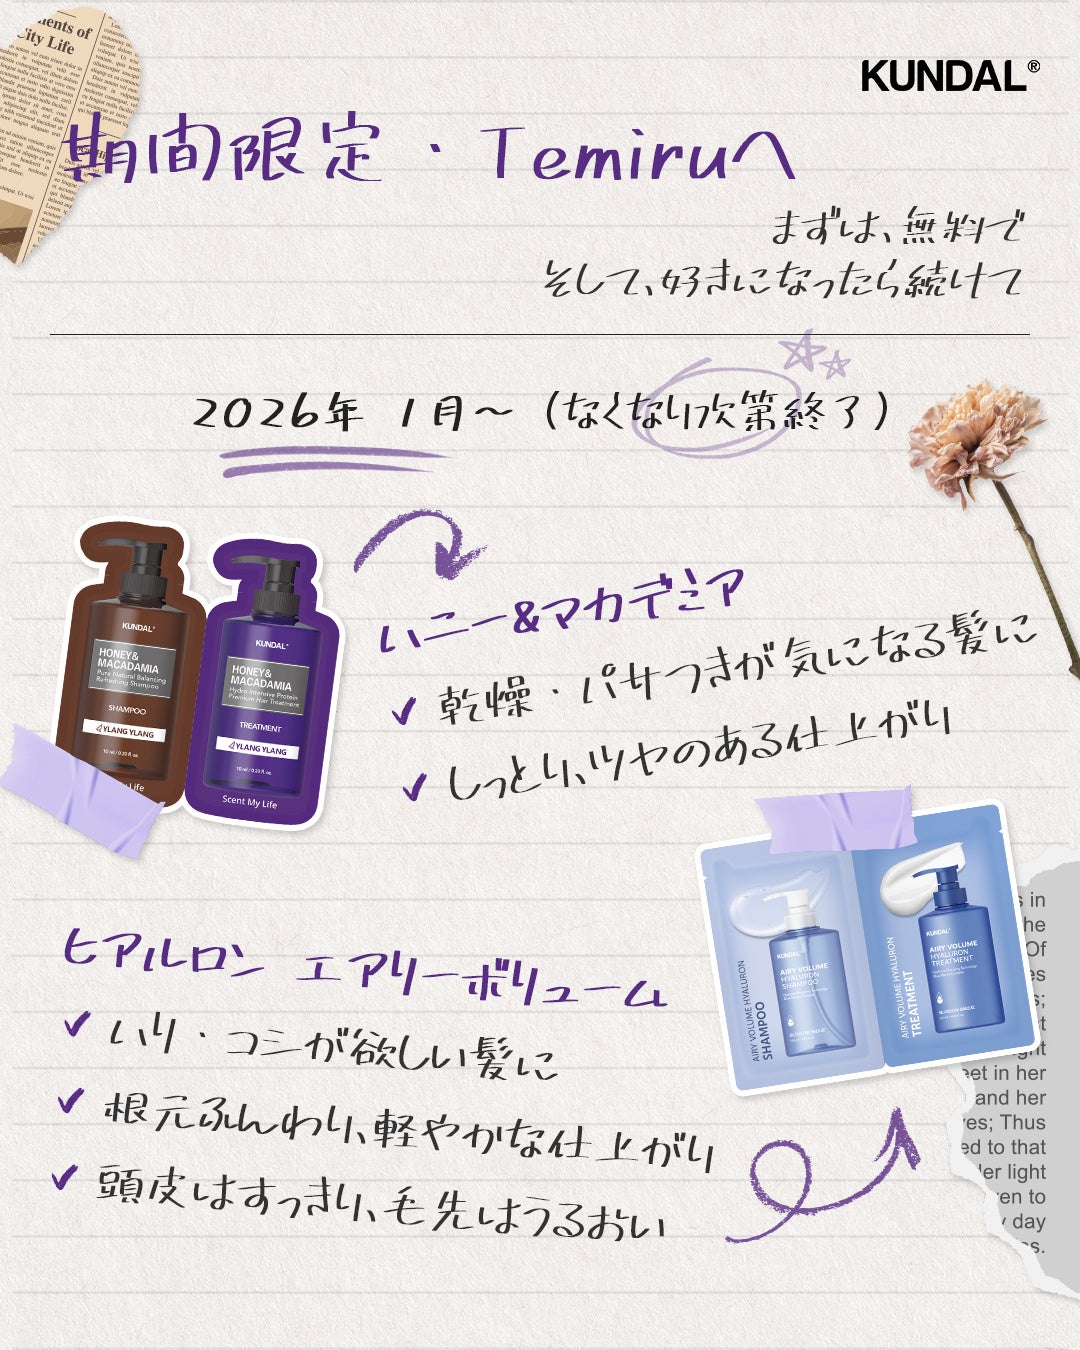 KUNDAL®
期間限定・Temiruへ
まずは、無料で
そして、好きになったら続けて
2026年 1月～ (なくなり次第終了)
KUNDAL®
HONEY&
MACADAMIA
Pure Natural Balancing
Refreshing Shampoo
SHAMPOO
YLANG YLANG
10 ml / 0.33 fl. oz.
Life
KUNDAL®
HONEY&
MACADAMIA
Hydro-Intensive Protein
Premium Hair Treatment
TREATMENT
YLANG YLANG
10 ml / 0.33 fl. oz.
Scent My Life
ハニー&マカデミア
乾燥・パサつきが気になる髪に
しっとり、ツヤのある仕上がり
AIRY VOLUME HYALURON
SHAMPOO
KUNDAL
AIRY VOLUME
HYALURON
SHAMPOO
BLOSSOM BREEZE
AIRY VOLUME HYALURON
TREATMENT
KUNDAL
AIRY VOLUME
HYALURON
TREATMENT
BLOSSOM BREEZE
ヒアルロン エアリーボリューム
ハリ・コシが欲しい髪に
根元ふんわり、軽やかな仕上がり
頭皮はすっきり、毛先はうるおい
City Life
in
he
Of
eet in her
and her
Thus
ed to that
light
to
day